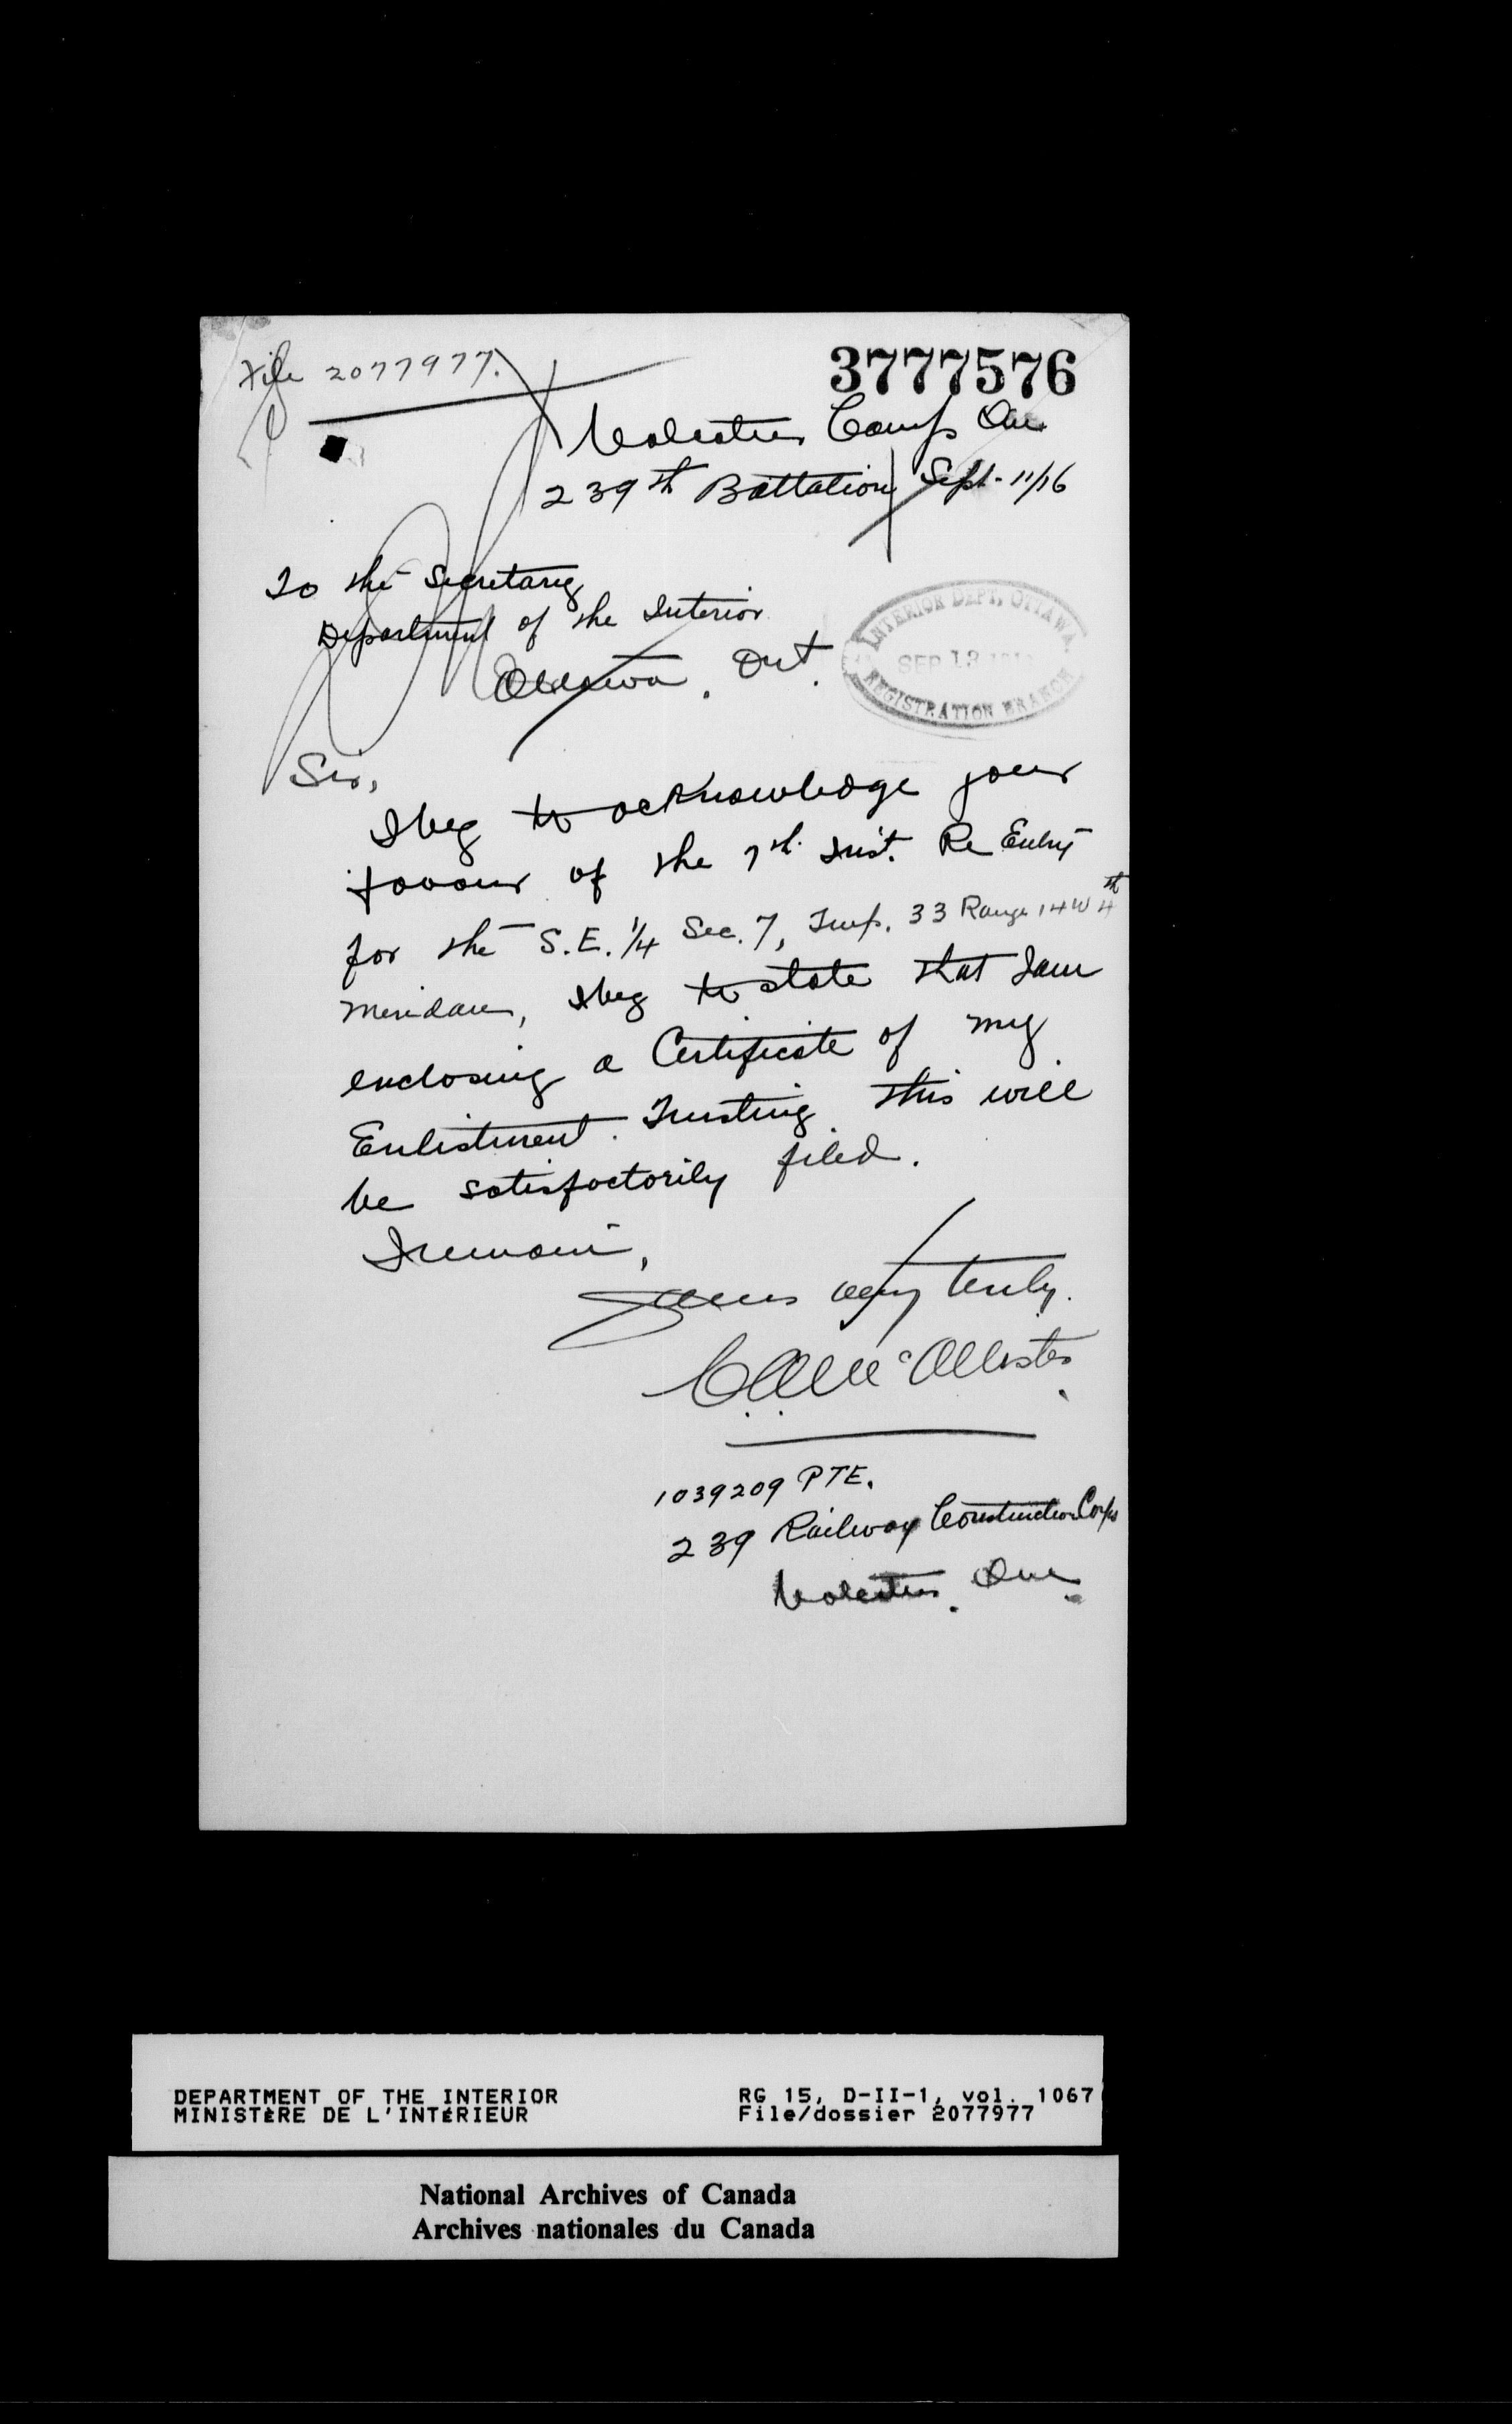 File 2077977.
3777576
Valcartier Camp Que
239th Battalion Sept. 11/16
To the Secretary
Department of the Interior
Ottawa. Ont.
INTERIOR DEPT, OTTAWA.
SEP 13
REGISTRATION BRANCH
Sir,
I beg to acknowledge your
favour of the 7th. Inst. Re Entry
for the S.E. 1/4 Sec. 7, Twp. 33 Range 14 W 4th
Meridian, I beg to state that I am
enclosing a Certificate of my
Enlistment. Trusting this will
be satisfactorily filed.
I remain,
Yours very truly.
C.A. McAllister
1039209 PTE.
239 Railway Construction Corps
Valcartier. Que.
DEPARTMENT OF THE INTERIOR
MINISTÈRE DE L'INTÉRIEUR
RG 15, D-II-1, vol. 1067
File/dossier 2077977
National Archives of Canada
Archives nationales du Canada